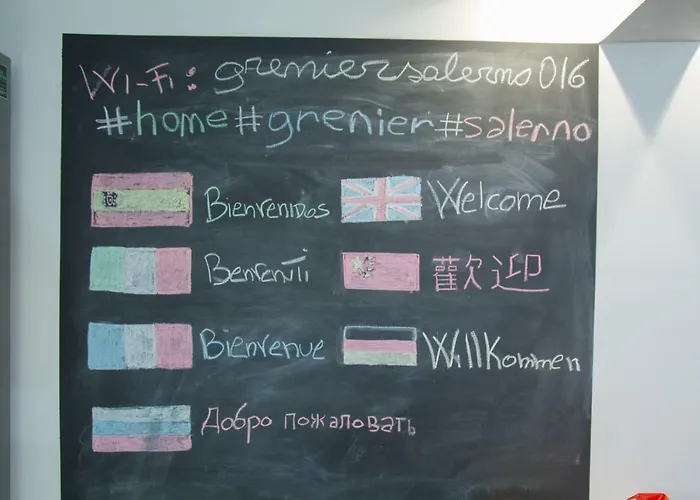 Wi-Fi: greniersalerno016
#home#grenier#salerno
Bienvenidos
Welcome
Benvenuti
歡迎
Bienvenue
Willkommen
Добро пожаловать